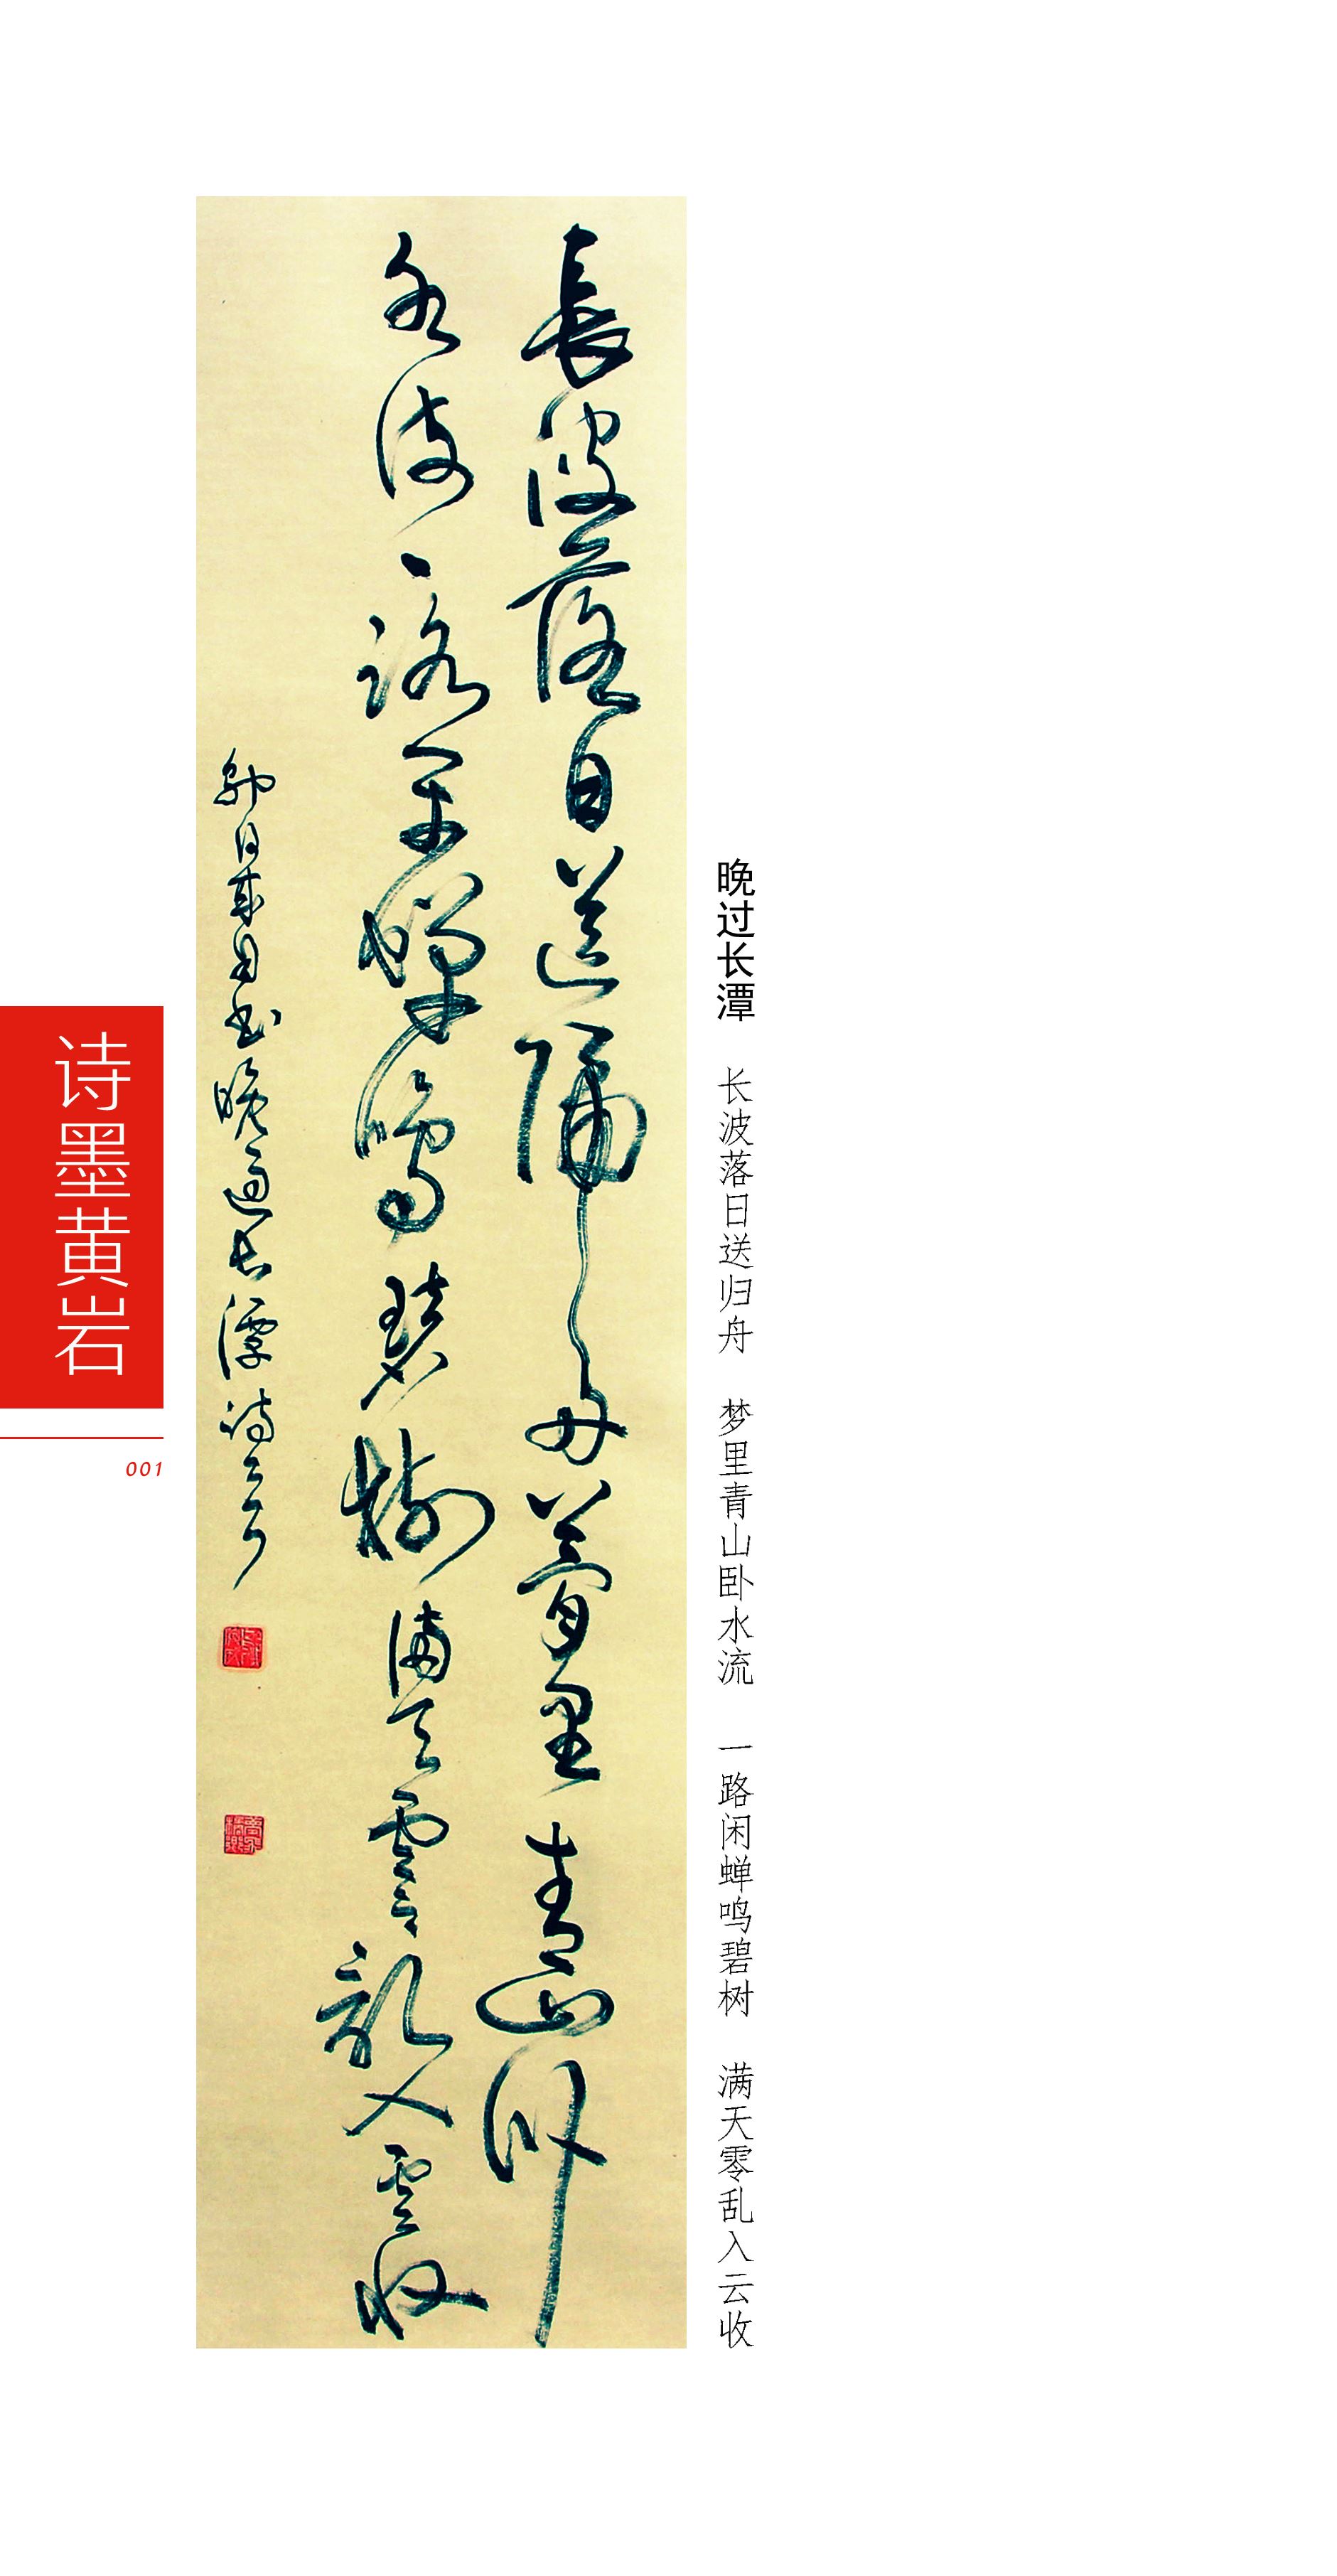 晚过长潭
长波落日送归舟 梦里青山卧水流 一路闲蝉鸣碧树 满天零乱入云收
長波落日送歸舟夢里青山卧
水流一路閑蟬鳴碧樹滿天零亂入雲收
書晚過長潭詩一首
诗墨黄岩
001